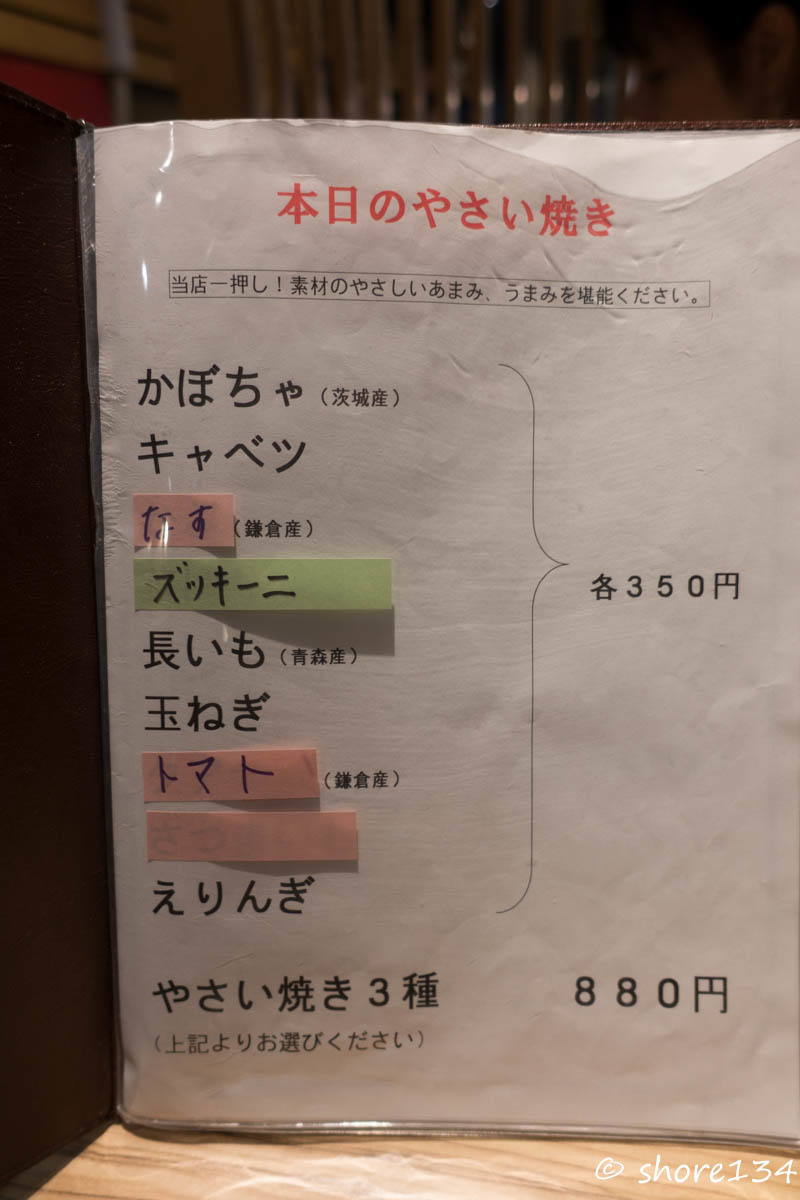 本日のやさい焼き
当店一押し！素材のやさしいあまみ、うまみを堪能ください。
かぼちゃ（茨城産）
キャベツ
なす（鎌倉産）
ズッキーニ
各３５０円
長いも（青森産）
玉ねぎ
トマト（鎌倉産）
えりんぎ
やさい焼き３種 ８８０円
（上記よりお選びください）
© shore134